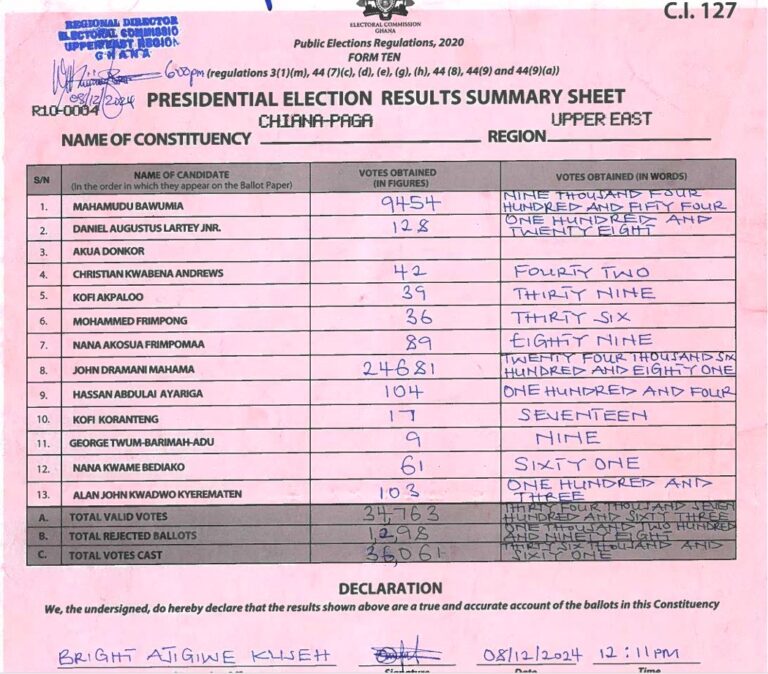 C.I. 127
REGIONAL DIRECTOR
ELECTORAL COMMISSIO
UPPER EAST REGION
GHANA
ELECTORAL COMMISSION
GHANA
Public Elections Regulations, 2020
FORM TEN
6:00pm (regulations 3(1)(m), 44 (7)(c), (d), (e), (g), (h), 44 (8), 44(9) and 44(9)(a))
08/12/2024
R10-0004
PRESIDENTIAL ELECTION RESULTS SUMMARY SHEET
NAME OF CONSTITUENCY CHIANA-PAGA REGION UPPER EAST
S/N NAME OF CANDIDATE (In the order in which they appear on the Ballot Paper) VOTES OBTAINED (IN FIGURES) VOTES OBTAINED (IN WORDS)
1. MAHAMUDU BAWUMIA 9454 NINE THOUSAND FOUR HUNDRED AND FIFTY FOUR
2. DANIEL AUGUSTUS LARTEY JNR. 128 ONE HUNDRED AND TWENTY EIGHT
3. AKUA DONKOR
4. CHRISTIAN KWABENA ANDREWS 42 FOURTY TWO
5. KOFI AKPALOO 39 THIRTY NINE
6. MOHAMMED FRIMPONG 36 THIRTY SIX
7. NANA AKOSUA FRIMPOMAA 89 EIGHTY NINE
8. JOHN DRAMANI MAHAMA 24681 TWENTY FOUR THOUSAND SIX HUNDRED AND EIGHTY ONE
9. HASSAN ABDULAI AYARIGA 104 ONE HUNDRED AND FOUR
10. KOFI KORANTENG 17 SEVENTEEN
11. GEORGE TWUM-BARIMAH-ADU 9 NINE
12. NANA KWAME BEDIAKO 61 SIXTY ONE
13. ALAN JOHN KWADWO KYEREMATEN 103 ONE HUNDRED AND THREE
A. TOTAL VALID VOTES 34,763 THIRTY FOUR THOUSAND SEVEN HUNDRED AND SIXTY THREE
B. TOTAL REJECTED BALLOTS 1298 ONE THOUSAND TWO HUNDRED AND NINETY EIGHT
C. TOTAL VOTES CAST 36,061 THIRTY SIX THOUSAND AND SIXTY ONE
DECLARATION
We, the undersigned, do hereby declare that the results shown above are a true and accurate account of the ballots in this Constituency
BRIGHT AJIGIWE KUSEH 08/12/2024 12:11PM
Signature Date Time